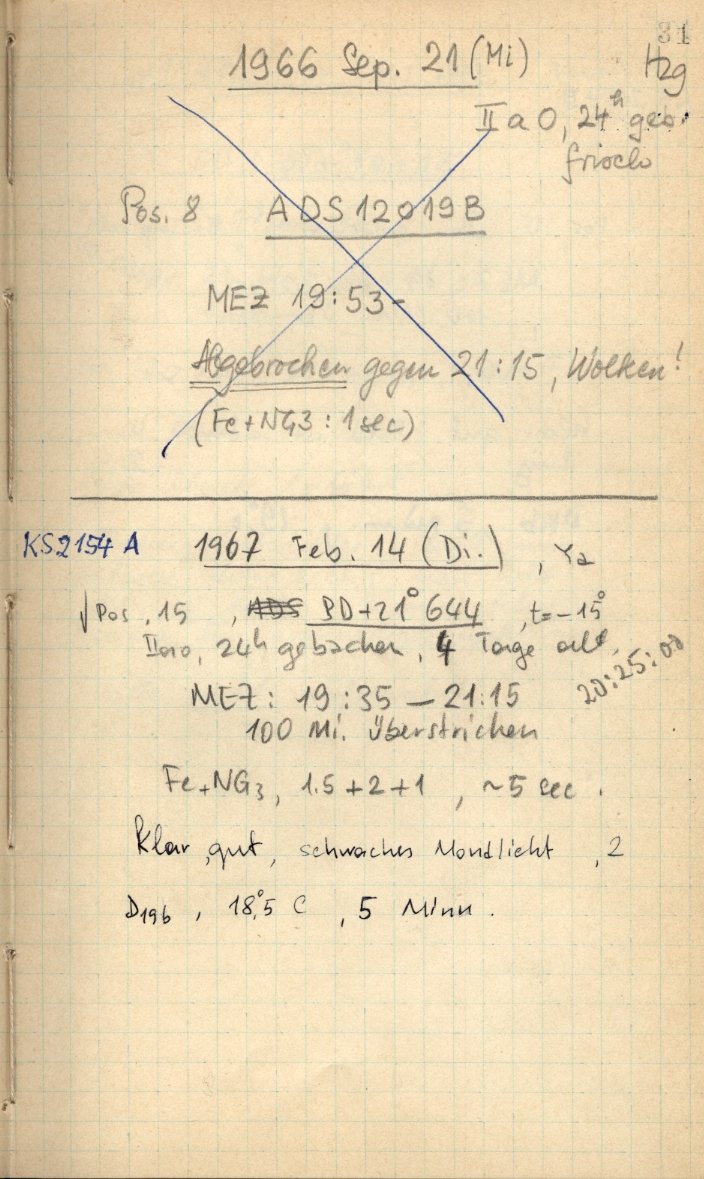 31
1966 Sep. 21 (Mi)
Hzg
II a O, 24ʰ geb.
frisch
Pos. 8 ADS 12019 B
MEZ 19:53-
Abgebrochen gegen 21:15, Wolken!
(Fe+NG3 : 1 sec)
KS2154 A 1967 Feb. 14 (Di.), Ya
√ Pos. 15, ADS BD+21° 644, t=-15°
IIaO, 24h gebacken, 4 Tage alt,
20:25:00
MEZ: 19:35 — 21:15
100 Mi. überstrichen
Fe+NG3, 1.5+2+1, ~5 sec.
Klar, gut, schwaches Mondlicht, 2
D19b, 18°,5 C, 5 Minu.